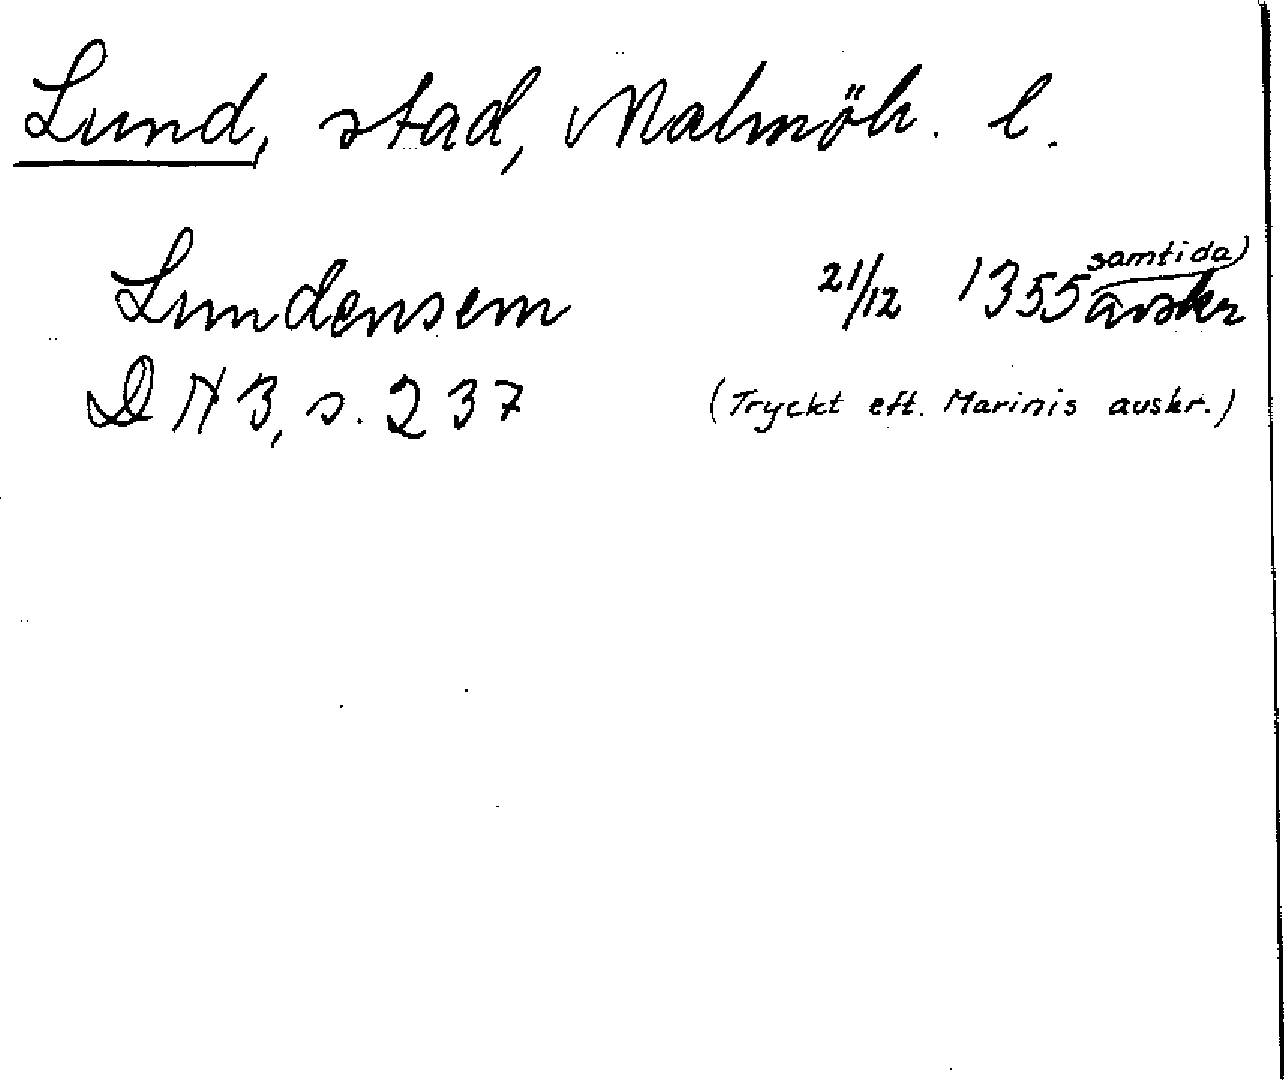 Lund, stad, Malmöh. l.
Lundensem 21/12 1355 samtida avskr
DN 3, s. 237 (Tryckt eft. Marinis avskr.)